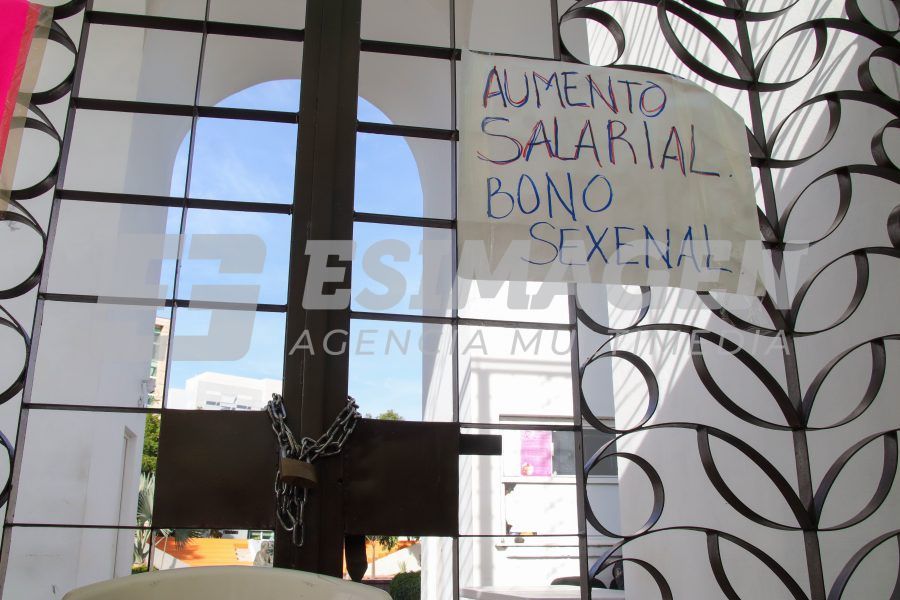 AUMENTO
SALARIAL.
BONO
SEXENAL
ESIMAGEN
AGENCIA MULTIMEDIA